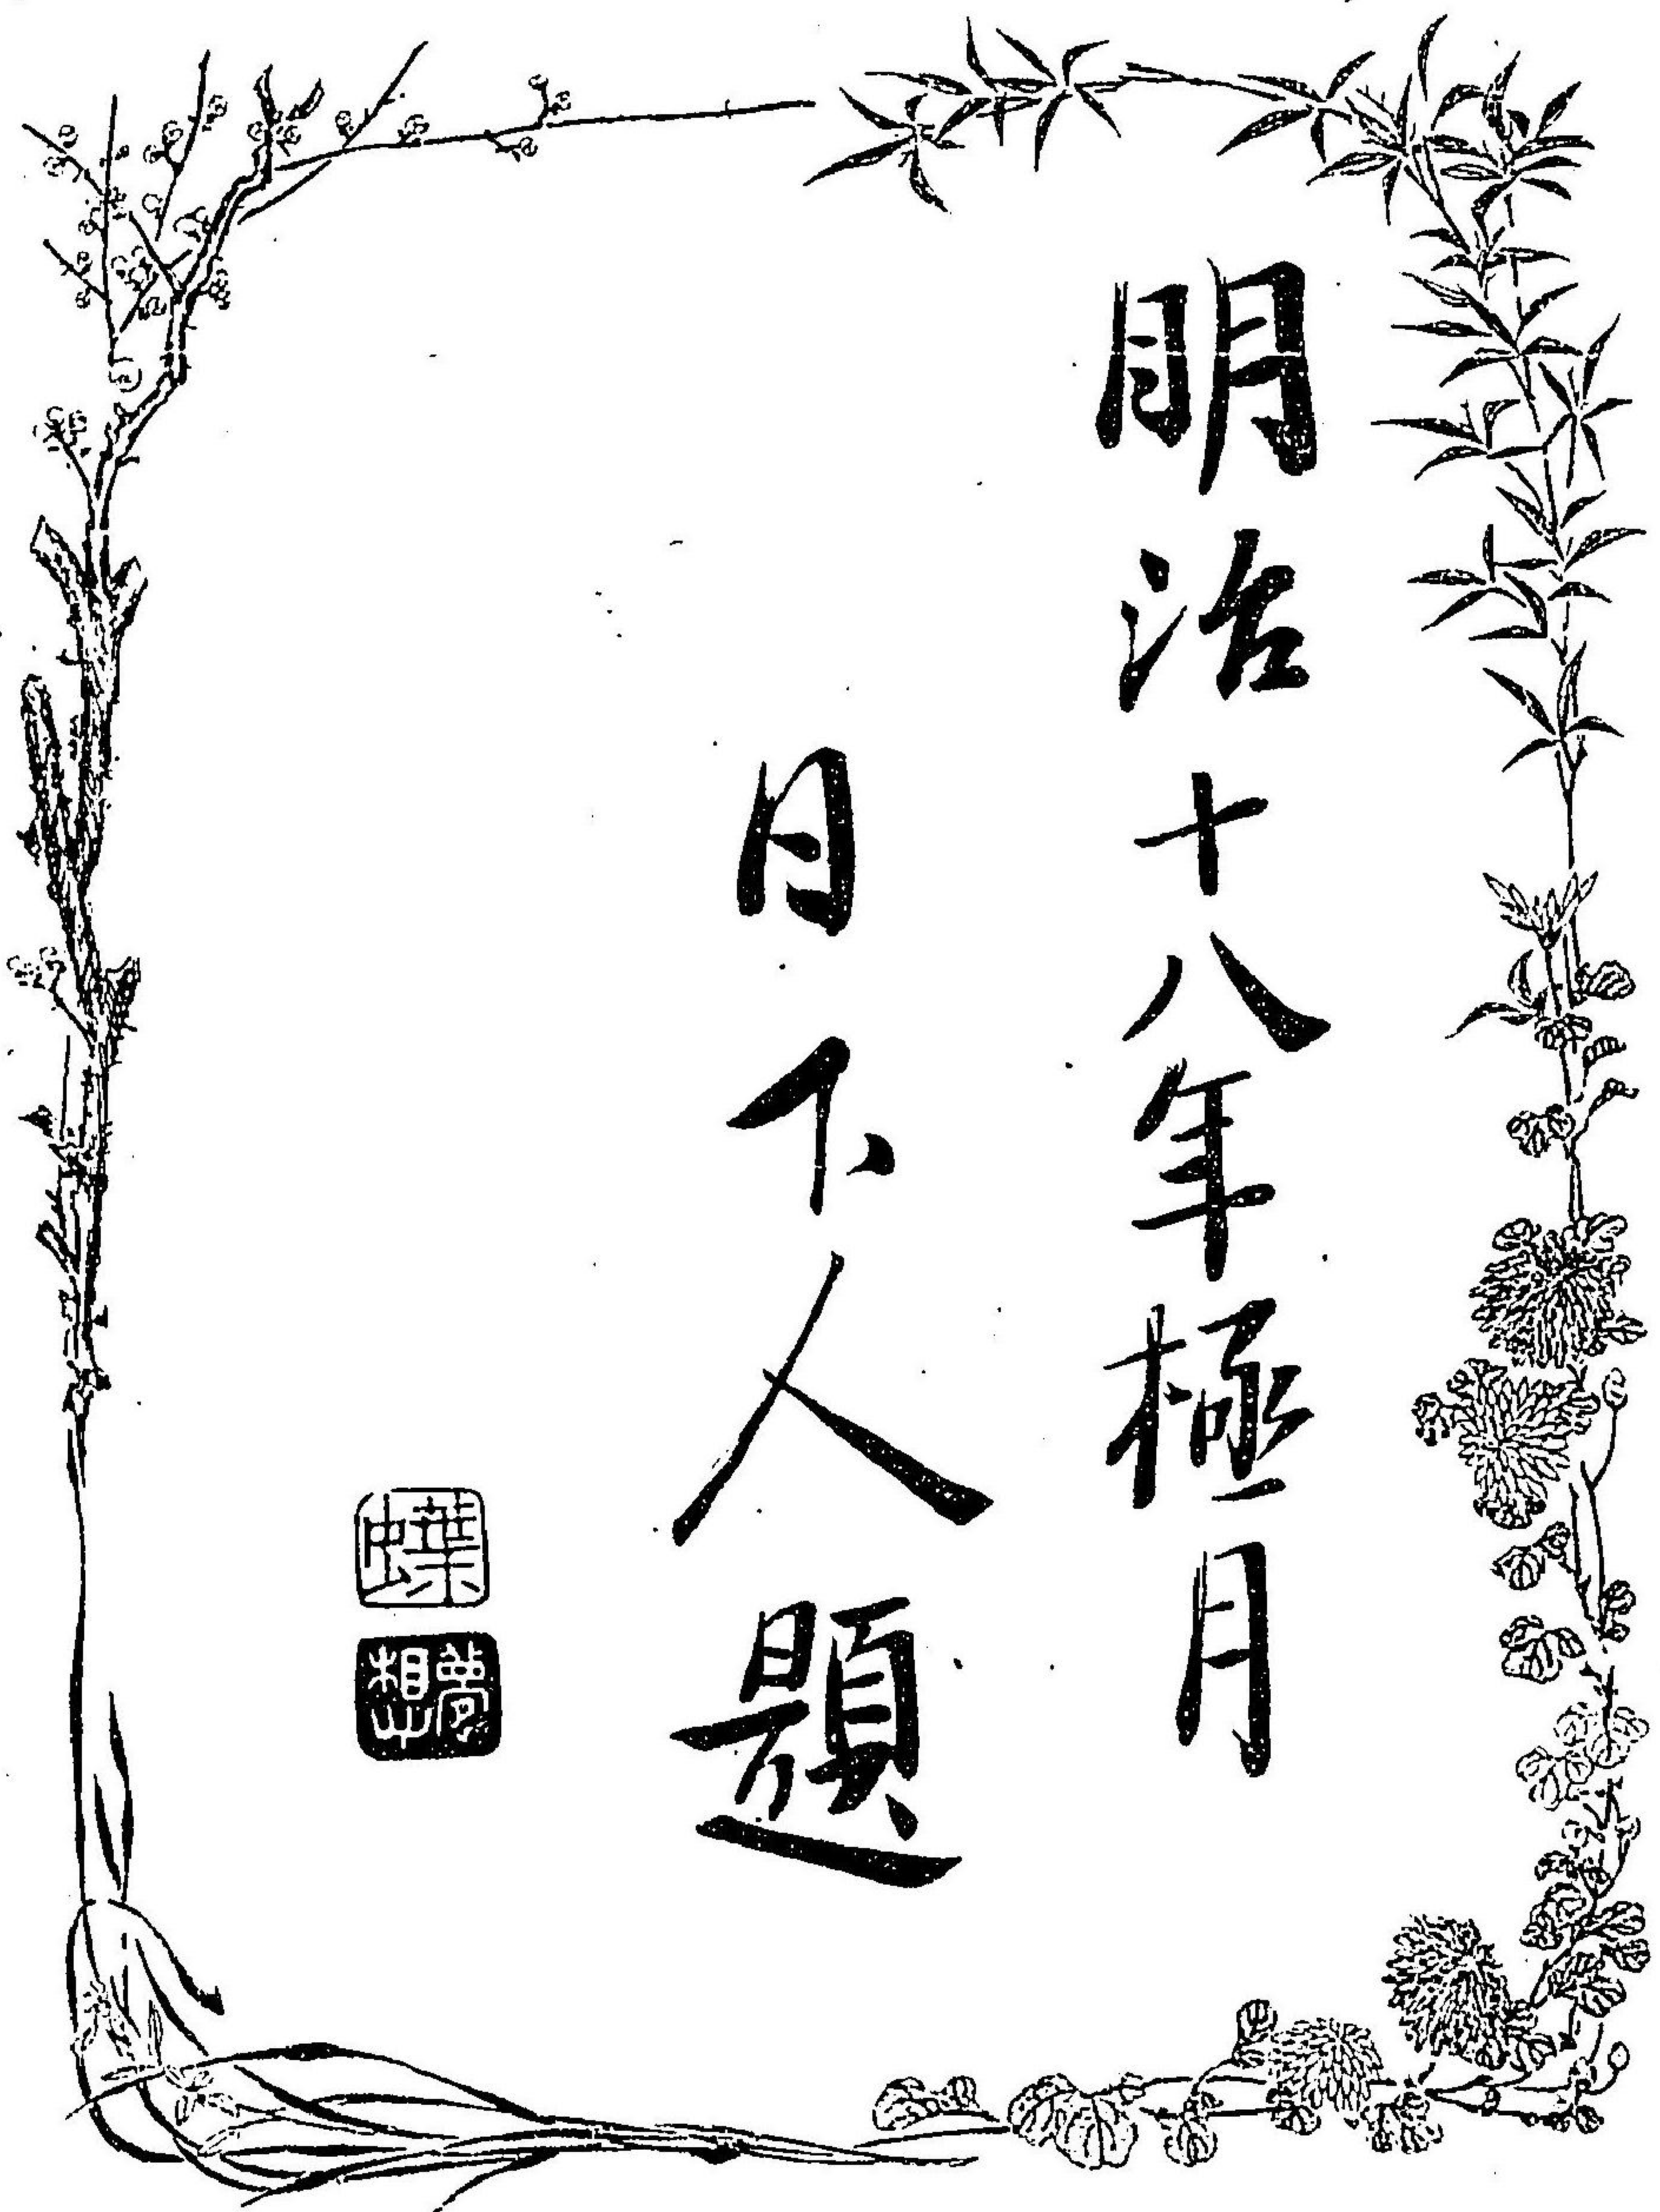 明治十八年極月
日下人題
蝶
夢想